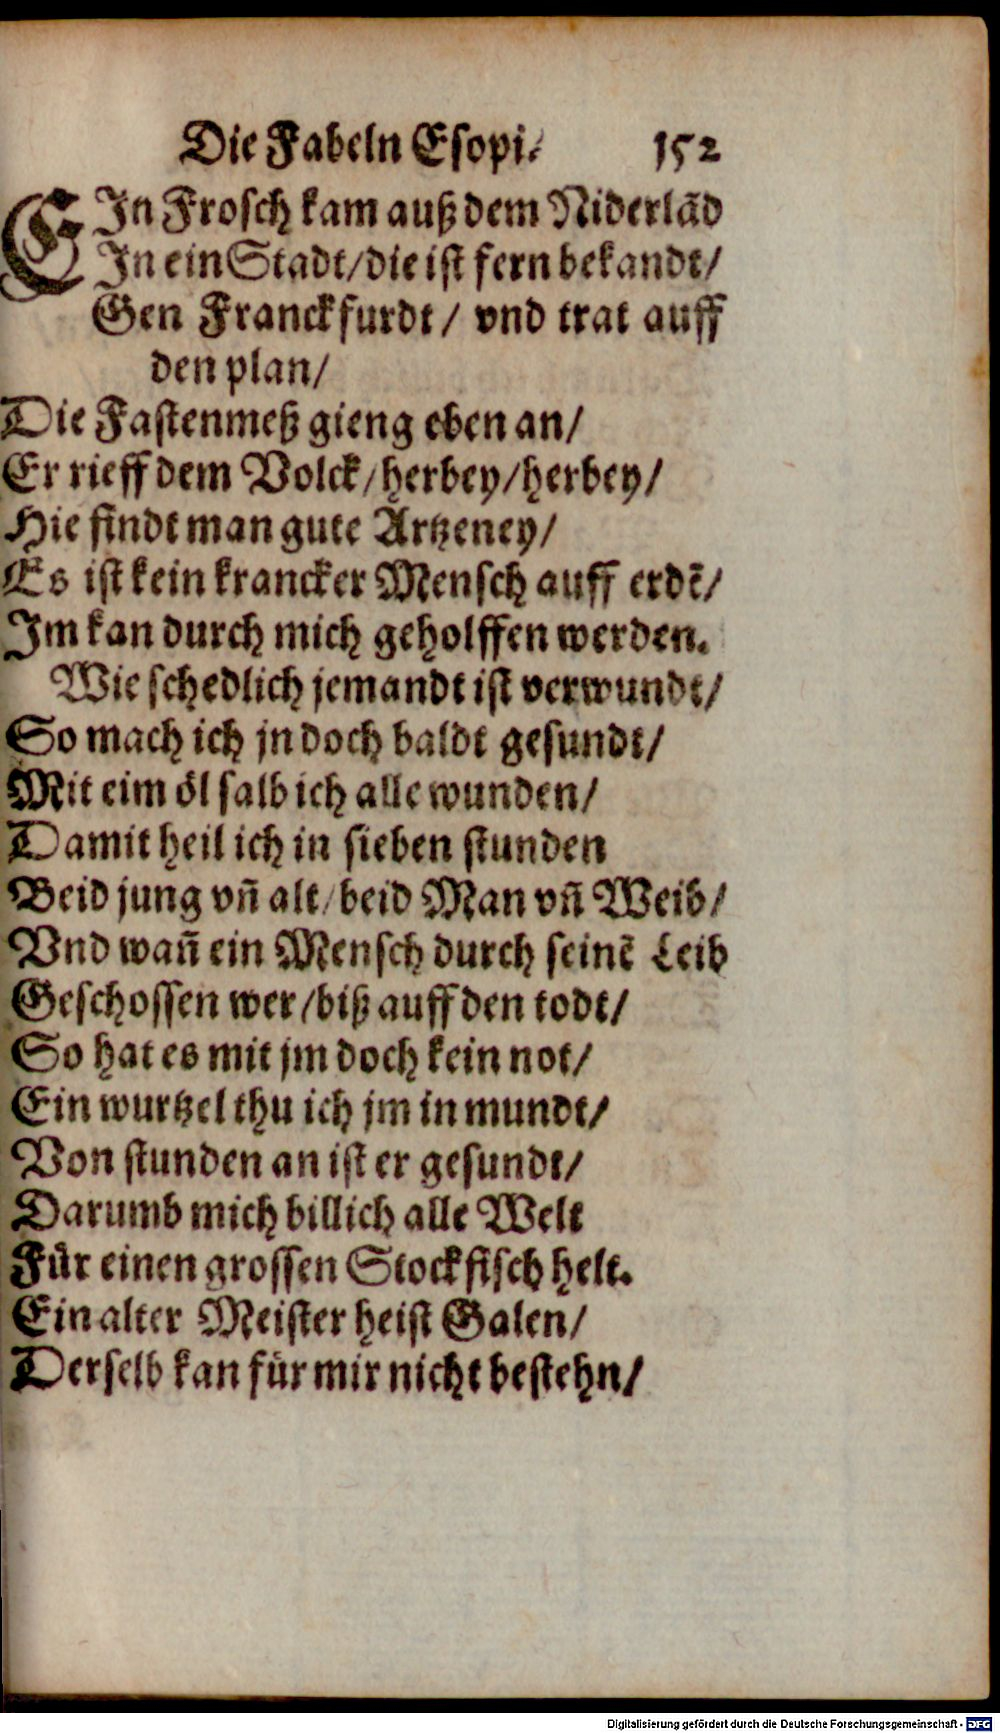 Die Fabeln Esopi. 152
EIn Frosch kam auß dem Niderlãd
In ein Stadt/die ist fern bekandt/
Gen Franckfurdt/ vnd trat auff
den plan/
Die Fastenmeß gieng eben an/
Er rieff dem Volck/herbey/herbey/
Hie findt man gute Artzeney/
Es ist kein krancker Mensch auff erdẽ/
Im kan durch mich geholffen werden.
Wie schedlich jemandt ist verwundt/
So mach ich jn doch baldt gesundt/
Mit eim öl salb ich alle wunden/
Damit heil ich in sieben stunden
Beid jung vñ alt/beid Man vñ Weib/
Vnd wañ ein Mensch durch seinẽ Leib
Geschossen wer/biß auff den todt/
So hat es mit jm doch kein not/
Ein wurtzel thu ich jm in mundt/
Von stunden an ist er gesundt/
Darumb mich billich alle Welt
Für einen grossen Stockfisch helt.
Ein alter Meister heist Galen/
Derselb kan für mir nicht bestehn/
Digitalisierung gefördert durch die Deutsche Forschungsgemeinschaft - DFG